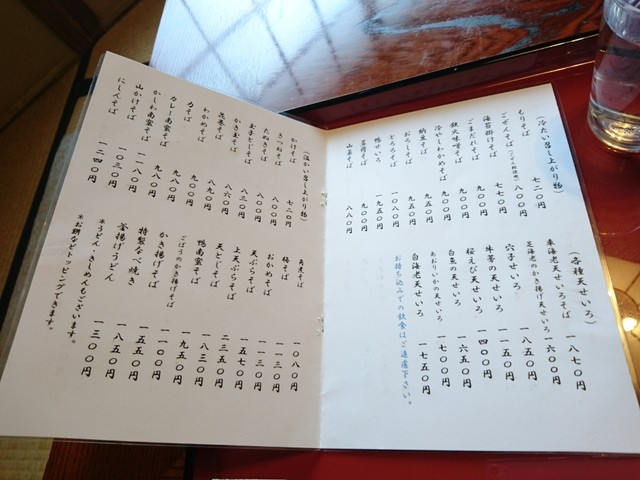 (冷たい召し上がり物)
もりそば 七二〇円
ごぜんそば 八〇〇円
海苔掛けそば 七七〇円
ごまだれそば 九〇〇円
鉄火味噌そば 九〇〇円
冷やしわかめそば 九〇〇円
納豆そば 九五〇円
おろしそば 九五〇円
とろろそば 一〇八〇円
鴨せいろ 一九五〇円
茗荷そば 九〇〇円
山菜そば 八八〇円
(各種天せいろ)
車海老天せいろそば 一八七〇円
芝海老のかき揚げ天せいろ 一六〇〇円
穴子せいろ 一八五〇円
牛蒡の天せいろ 一一五〇円
桜えび天せいろ 一四〇〇円
白魚の天せいろ 一六五〇円
あおりいかの天せいろ 一七〇〇円
白海老天せいろ 一七五〇円
お持ち込みでの飲食はご遠慮下さい。
(温かい召し上がり物)
かけそば 七二〇円
きつねそば 八〇〇円
たぬきそば 八〇〇円
玉子とじそば 八三〇円
かき玉そば 八六〇円
花巻そば 八八〇円
わかめそば 九〇〇円
力そば 九八〇円
カレー南蛮そば 九八〇円
かしわ南蛮そば 一一八〇円
山かけそば 一〇三〇円
にしんそば 一二四〇円
角煮そば 一〇八〇円
梅そば 一一三〇円
おかめそば 一一三〇円
天ぷらそば 一五七〇円
上天ぷらそば 二三五〇円
天とじそば 一八三〇円
鴨南蛮そば 一九五〇円
ごぼうのかき揚げそば 一一〇〇円
かき揚げそば 一五五〇円
特製なべ焼き 一八五〇円
釜揚げうどん 一三〇〇円
※うどん・きしめんもございます。
※お餅などトッピングできます。